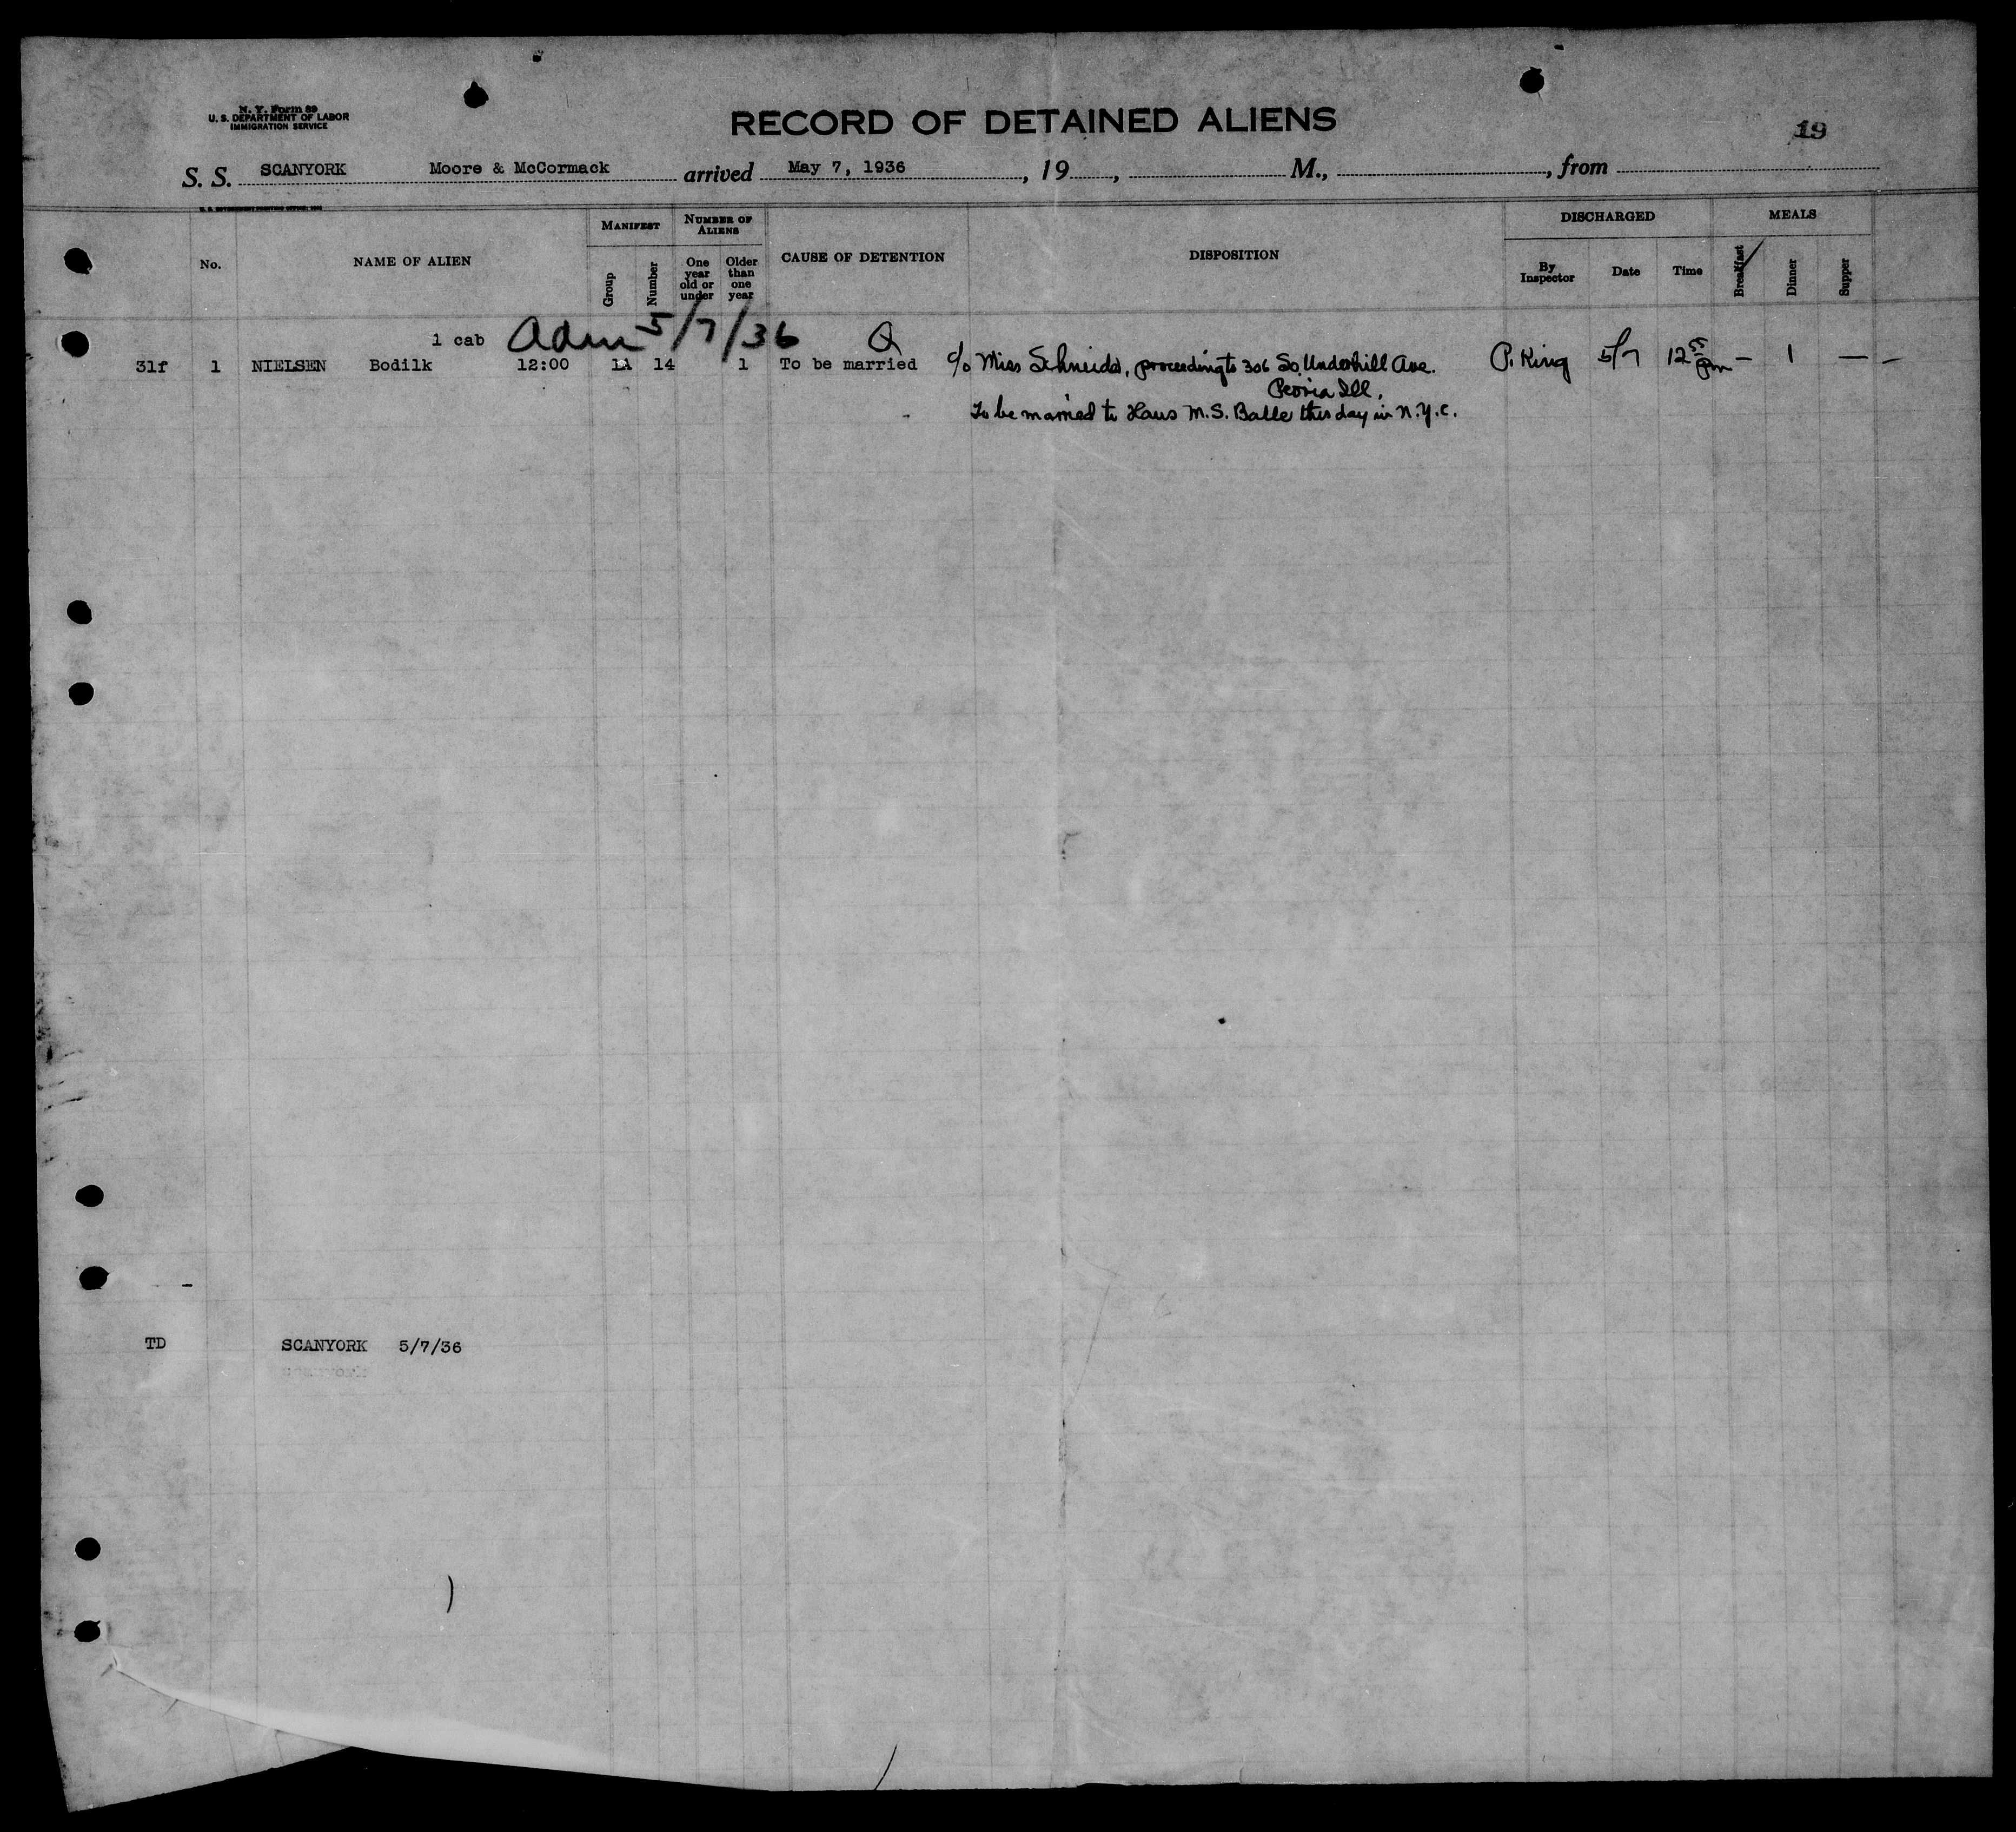 N. Y. Form 89
U. S. DEPARTMENT OF LABOR
IMMIGRATION SERVICE
RECORD OF DETAINED ALIENS
19
S. S. SCANYORK Moore & McCormack arrived May 7, 1936, 19, M., from
MANIFEST NUMBER OF ALIENS DISCHARGED MEALS
No. NAME OF ALIEN Group Number One year old or under Older than one year CAUSE OF DETENTION DISPOSITION By Inspector Date Time Breakfast Dinner Supper
1 cab Adm 5/7/36 Q
31f 1 NIELSEN Bodilk 12:00 1A 14 1 To be married c/o Miss Schneider, proceeding to 306 So. Underhill Ave. P. King 5/7 12 55 pm — 1 — —
Peoria Ill.
To be married to Hans M.S. Balle this day in N.Y.C.
TD SCANYORK 5/7/36